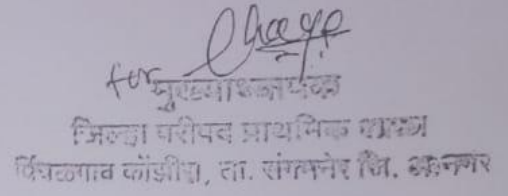 for
मुख्याध्यापक
जिल्हा परीषद प्राथमिक शाळा
पिंपळगाव कोंझीरा, ता. संगमनेर जि. अ.नगर